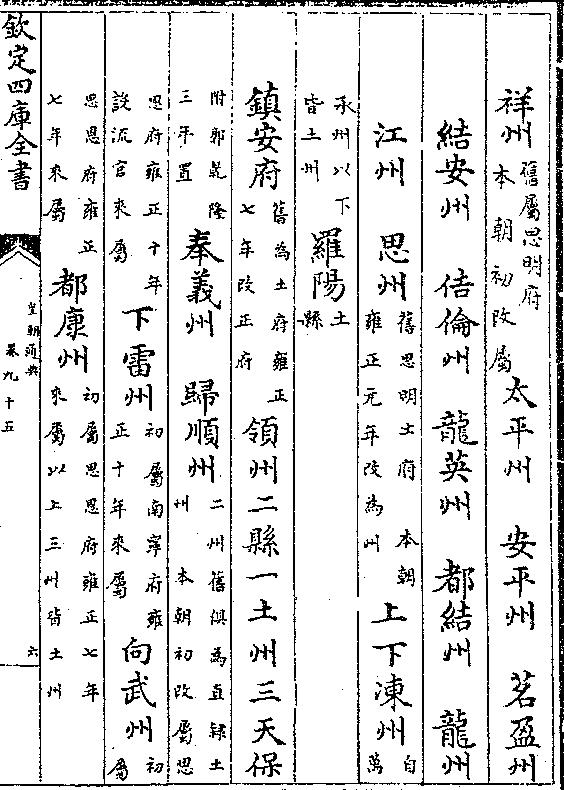 祥州舊屬思明府本朝初改屬太平州 安平州 茗盈州
結安州 佶倫州 龍英州 都結州 龍州
江州 思州舊思明土府本朝雍正元年改為州上下凍州自萬
承州以下皆土州羅陽土縣
鎮安府舊為土府雍正七年改正府領州二縣一土州三天保
附郭乾隆三年置奉義州 歸順州二州舊俱為直隸土州本朝初改屬思
恩府雍正十年設流官來屬下雷州初屬南寧府雍正十年來屬向武州初屬
思恩府雍正七年來屬都康州初屬思恩府雍正七年來屬以上三州皆土州
欽定四庫全書
皇朝通典
卷九十五
六